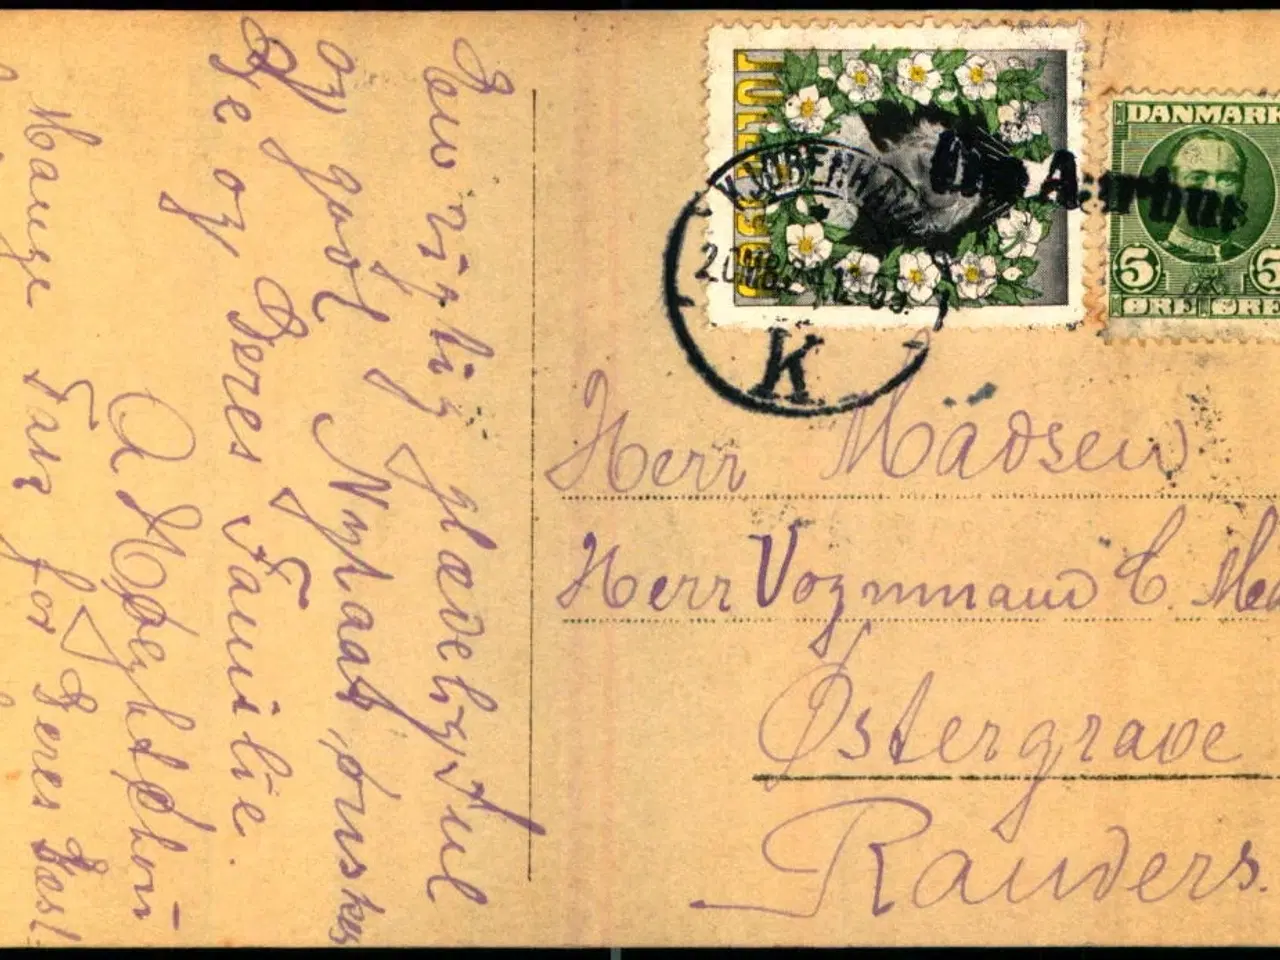 DANMARK
5 5
ØRE ØRE
KJØBENHAVN
K
Aarhus
Herr Madsen
Herr Vognmand C.
Østergrave
Randers.
En rigtig glædelig Jul
og god Nytaar, ønskes
De og Deres Familie.
Mange Tak for Deres